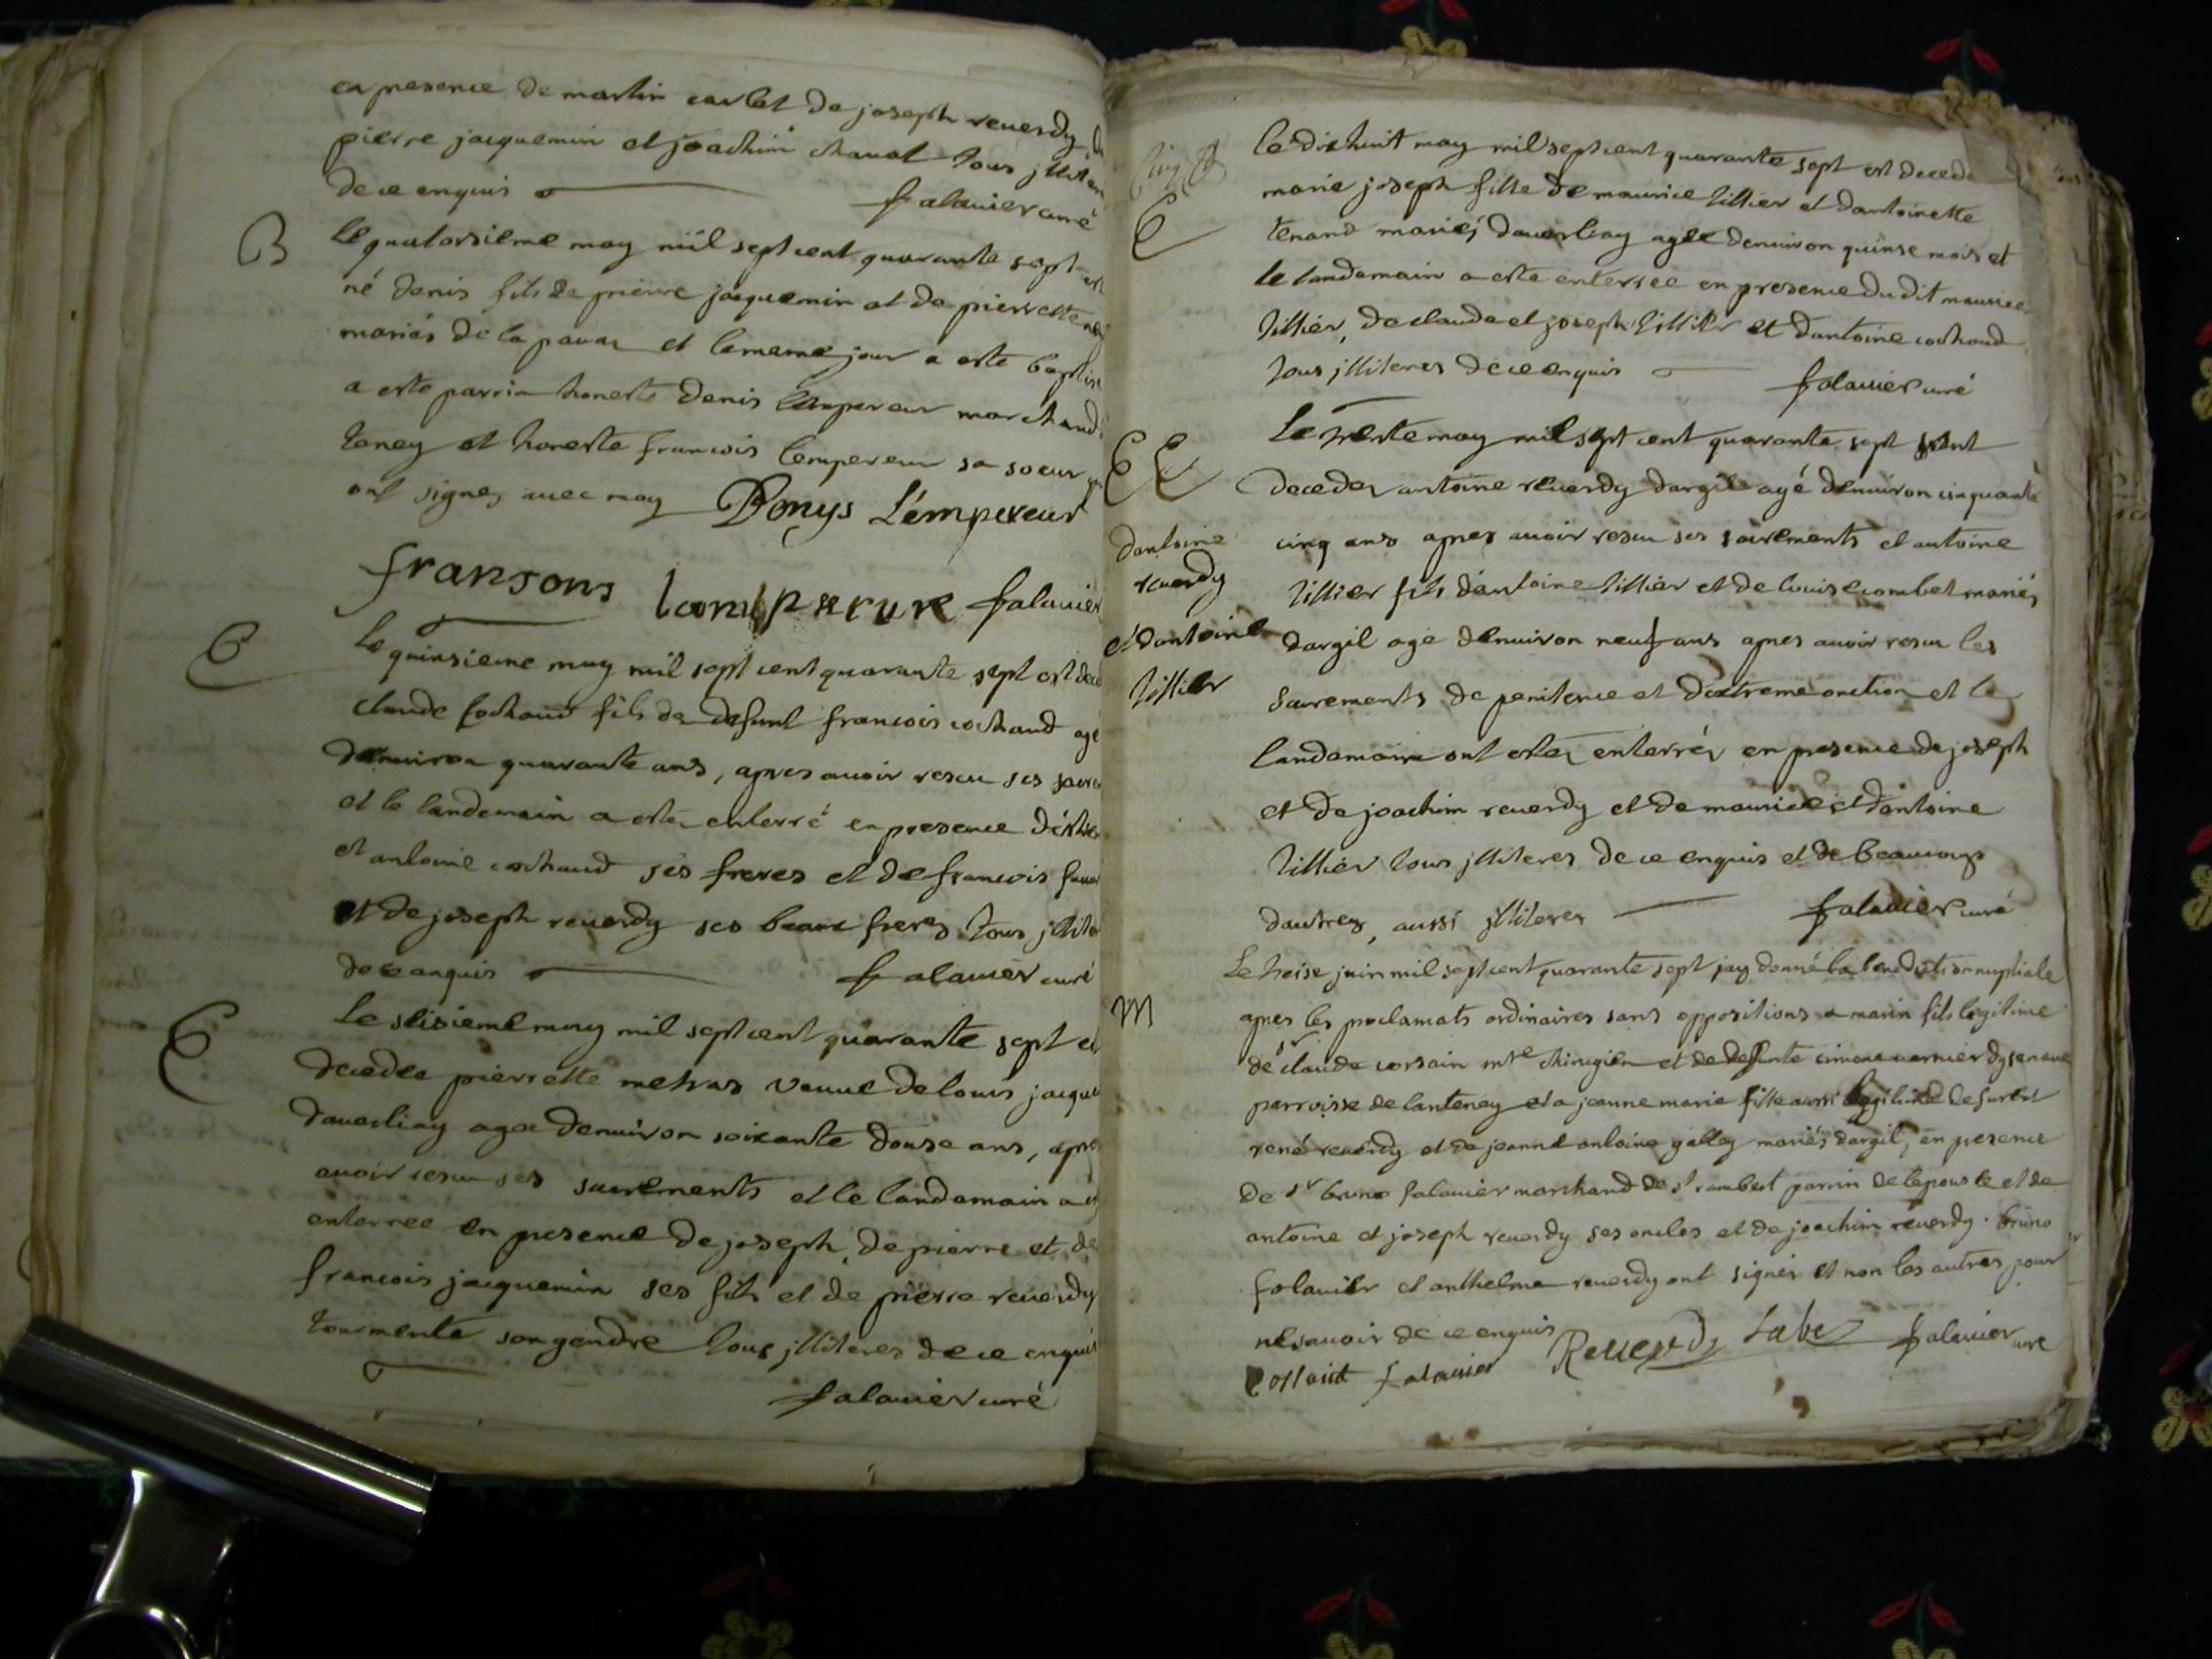 en presence de martin carlet de joseph reuerdy
pierre jacquemin et joachim chanal tous jlliter
de ce enquis falauier curé
B
Le quatorsieme may mil sept cent quarante sept est
né denis fils de pierre jacquemin et de pierrette
mariés de la et le meme jour a este baptisé
a este parrin honeste denis lempereur marchand
teney et honeste francois lempereur sa soeur qui
ont signes auec moy Denys L'émpereur
fransons lamperur falauier
E
Le quinsieme may mil sept cent quarante sept est dece
claude cochaud fils de defunt francois cochaud agé
denuiron quarante ans, apres auoir resceu ses sacre
et le landemain a este enterré en presence
et antoine cochaud ses freres et de francois
et de joseph reuerdy ses beaux freres tous jllite
de ce enquis falauier curé
E
Le seisieme may mil sept cent quarante sept est
decedée pierrette metras veuue de louis jacque
dauerliay agee denuiron soixante douse ans, apres
auoir resceu ses sacrements et le landemain a e
enterree en presence de joseph, de pierre et de
francois jacquemin ses fils et de pierre reuerdy
tourmente son gendre tous jlliteres de ce enquis
falauier curé
le dixhuit may mil sept cent quarante sept est decede
E
marie joseph fille de maurice tillier et dantoinette
tenand mariés dauerliay agee denuiron quinse mois et
le landemain a este enterree en presence du dit maurice
tillier, de claude et joseph tillier et dantoine cochaud
tous jlliteres de ce enquis falauier curé
E E
Le trente may mil sept cent quarante sept sont
decedes antoine reuerdy dargil agé denuiron cinquante
dantoine
reuerdy
et dantoine
tillier
cinq ans apres auoir resceu ses sacrements et antoine
tillier fils d'antoine tillier et de louise combet mariés
dargil agé denuiron neuf ans apres auoir resceu les
sacrements de penitence et dextreme onction et le
landemain ont estes enterrés en presence de joseph
et de joachim reuerdy et de maurice et dantoine
tillier tous jlliteres de ce enquis et de beaucoup
dautres, aussi jlliteres falauier curé
Le treise juin mil sept cent quarante sept jay donné la benediction nuptiale
M
apres les proclamats ordinaires sans oppositions a marin fils legitime
de sr claude corsain mtre chirugien et de defunte simone
parroisse de lanteney et a jeanne marie fille aussi legitime de furent
rené reuerdy et de jeanne antoine galley mariés dargil, en presence
de sr bruno falauier marchand de st rambert parrin de lepouse et de
antoine et joseph reuerdy ses oncles et de joachim reuerdy. bruno
falauier et anthelme reuerdy ont signés et non les autres pour
ne sauoir de ce enquis
falauier Reuerdy falauier curé